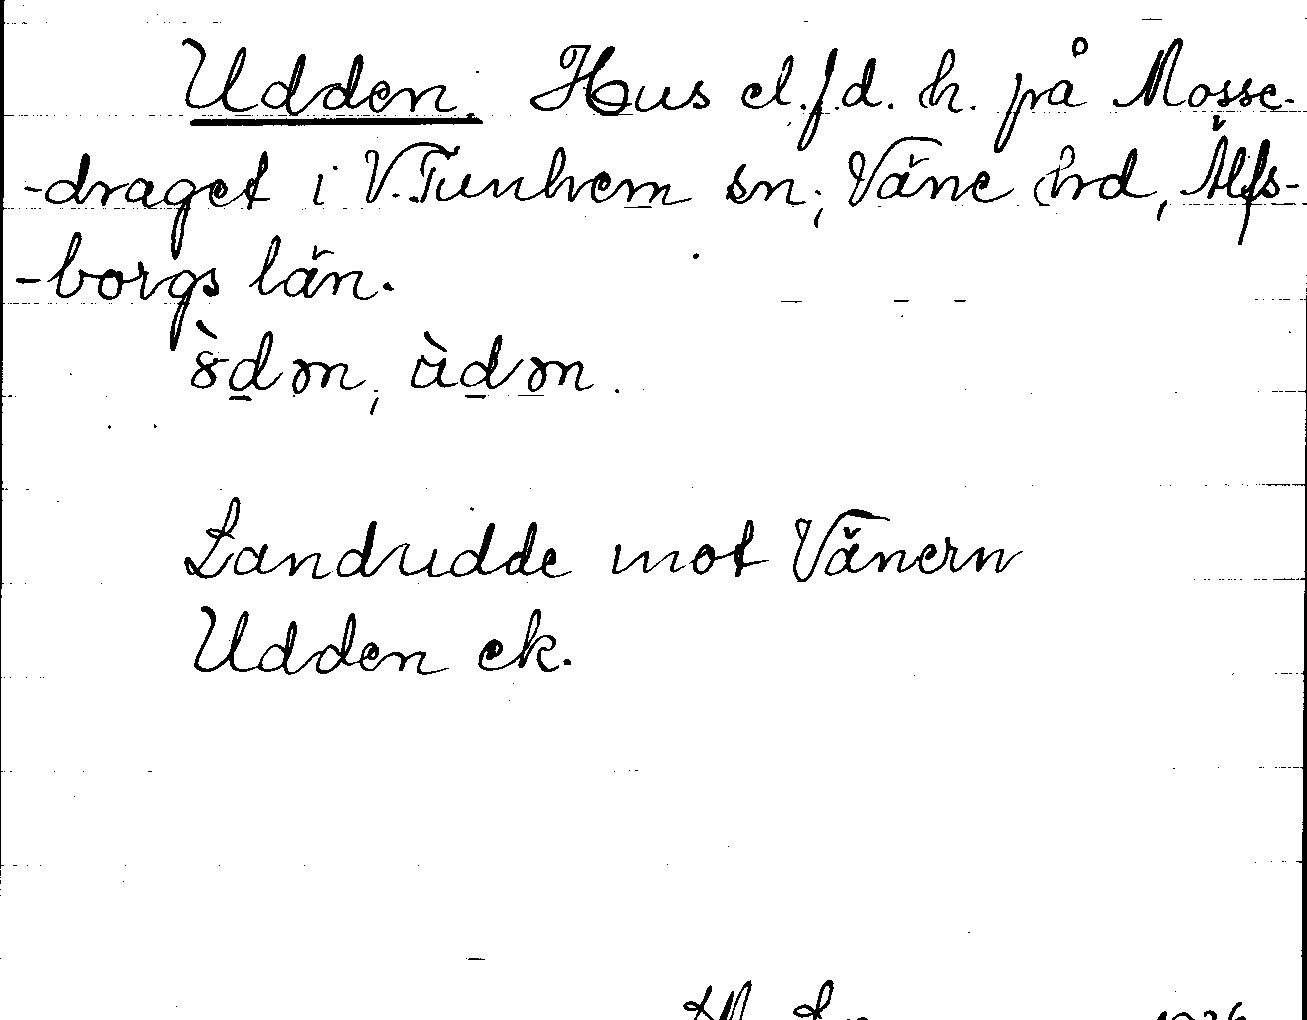 Udden. Hus el. f.d. h. på Mosse-
-draget i V. Tunhem sn; Väne hrd, Älfs-
-borgs län.
Landudde mot Vänern
Udden ek.